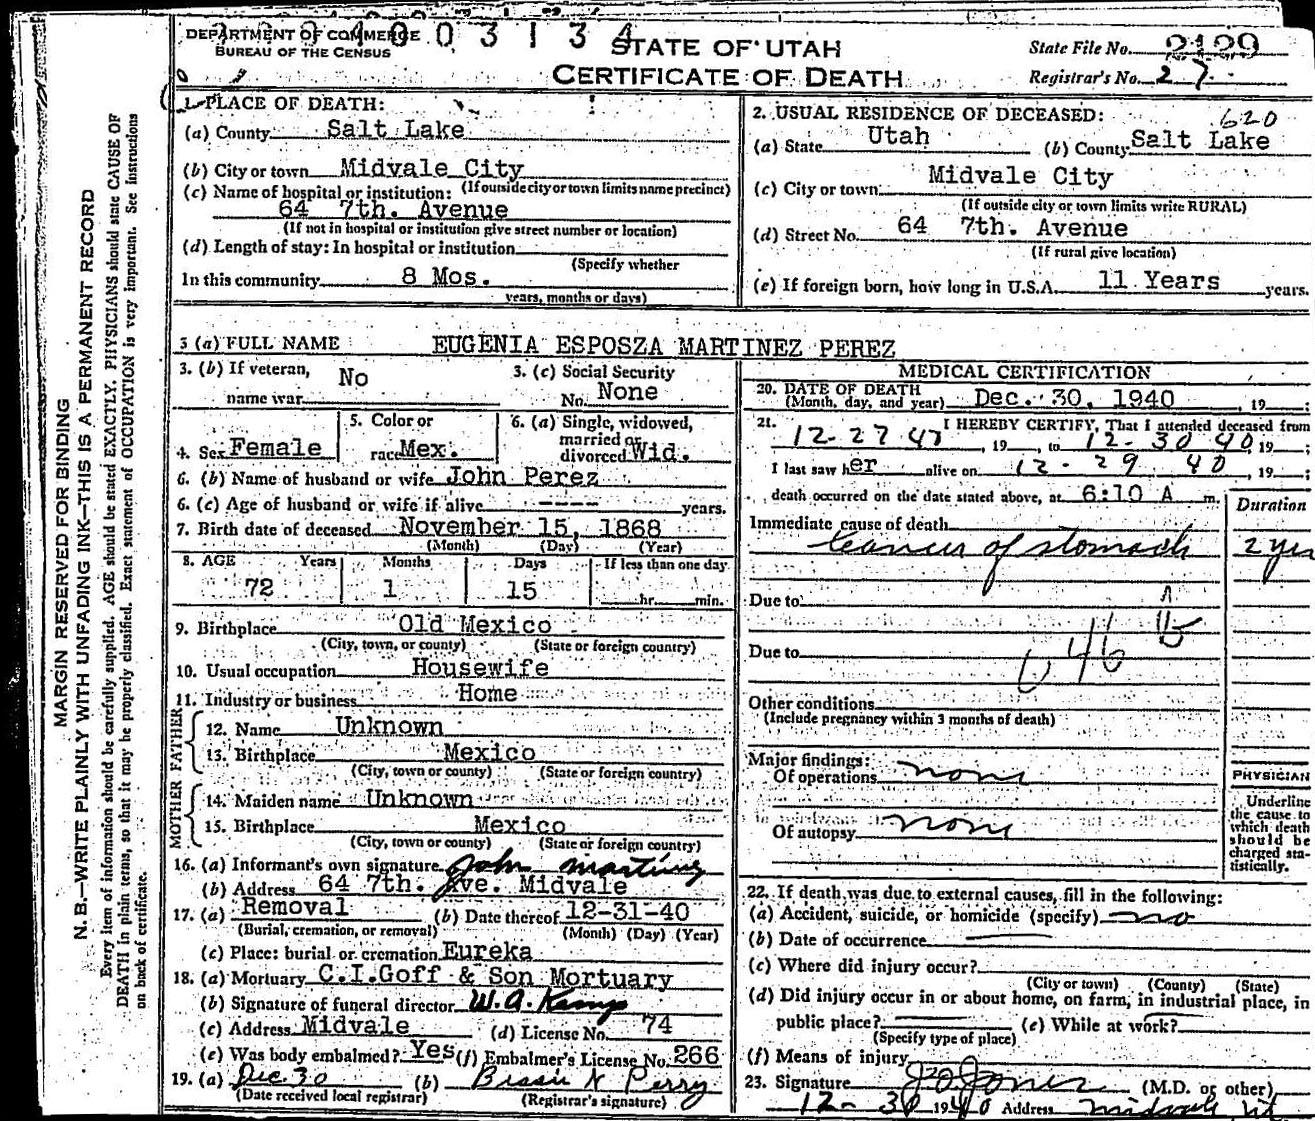 DEPARTMENT OF COMMERCE
BUREAU OF THE CENSUS
4 0 0 3 1 3 4
STATE OF UTAH
CERTIFICATE OF DEATH
State File No. 2129
Registrar's No. 27
1. PLACE OF DEATH:
(a) County Salt Lake
(b) City or town Midvale City
(c) Name of hospital or institution: (If outside city or town limits name precinct)
64 7th. Avenue
(If not in hospital or institution give street number or location)
(d) Length of stay: In hospital or institution
(Specify whether
In this community 8 Mos.
years, months or days)
2. USUAL RESIDENCE OF DECEASED:
620
(a) State Utah (b) County Salt Lake
(c) City or town Midvale City
(If outside city or town limits write RURAL)
(d) Street No. 64 7th. Avenue
(If rural give location)
(e) If foreign born, how long in U.S.A. 11 Years years.
3 (a) FULL NAME EUGENIA ESPOSZA MARTINEZ PEREZ
3. (b) If veteran, No
name war
3. (c) Social Security
No. None
4. Sex Female
5. Color or
race Mex.
6. (a) Single, widowed,
married or
divorced Wid.
6. (b) Name of husband or wife John Perez
6. (c) Age of husband or wife if alive ---- years.
7. Birth date of deceased November 15, 1868
(Month) (Day) (Year)
8. AGE Years Months Days If less than one day
72 1 15 hr. min.
9. Birthplace Old Mexico
(City, town, or county) (State or foreign country)
10. Usual occupation Housewife
11. Industry or business Home
FATHER
12. Name Unknown
13. Birthplace Mexico
(City, town or county) (State or foreign country)
MOTHER
14. Maiden name Unknown
15. Birthplace Mexico
(City, town or county) (State or foreign country)
16. (a) Informant's own signature John Martinez
(b) Address 64 7th. Ave. Midvale
17. (a) Removal (b) Date thereof 12-31-40
(Burial, cremation, or removal) (Month) (Day) (Year)
(c) Place: burial or cremation Eureka
18. (a) Mortuary C.I.Goff & Son Mortuary
(b) Signature of funeral director W. A. Kemp
(c) Address Midvale (d) License No. 74
(e) Was body embalmed? Yes (f) Embalmer's License No. 266
19. (a) Dec. 30 (b) Bessie N Perry
(Date received local registrar) (Registrar's signature)
MEDICAL CERTIFICATION
20. DATE OF DEATH
(Month, day, and year) Dec. 30, 1940, 19 ;
21. I HEREBY CERTIFY, That I attended deceased from
12-27 40, 19 , to 12-30 40, 19 ;
I last saw her alive on 12-29 40, 19 ;
death occurred on the date stated above, at 6:10 A m.
Duration
Immediate cause of death
Cancer of stomach 2 yrs
Due to
Due to
046
Other conditions
(Include pregnancy within 3 months of death)
Major findings:
Of operations none
Of autopsy none
PHYSICIAN
Underline
the cause to
which death
should be
charged sta-
tistically.
22. If death was due to external causes, fill in the following:
(a) Accident, suicide, or homicide (specify) no
(b) Date of occurrence
(c) Where did injury occur?
(City or town) (County) (State)
(d) Did injury occur in or about home, on farm, in industrial place, in
public place? (e) While at work?
(Specify type of place)
(f) Means of injury
23. Signature J O Jones (M.D. or other)
12-30 1940 Address Midvale Ut
MARGIN RESERVED FOR BINDING
N. B.—WRITE PLAINLY WITH UNFADING INK—THIS IS A PERMANENT RECORD
Every item of information should be carefully supplied. AGE should be stated EXACTLY. PHYSICIANS should state CAUSE OF
DEATH in plain terms, so that it may be properly classified. Exact statement of OCCUPATION is very important. See instructions
on back of certificate.